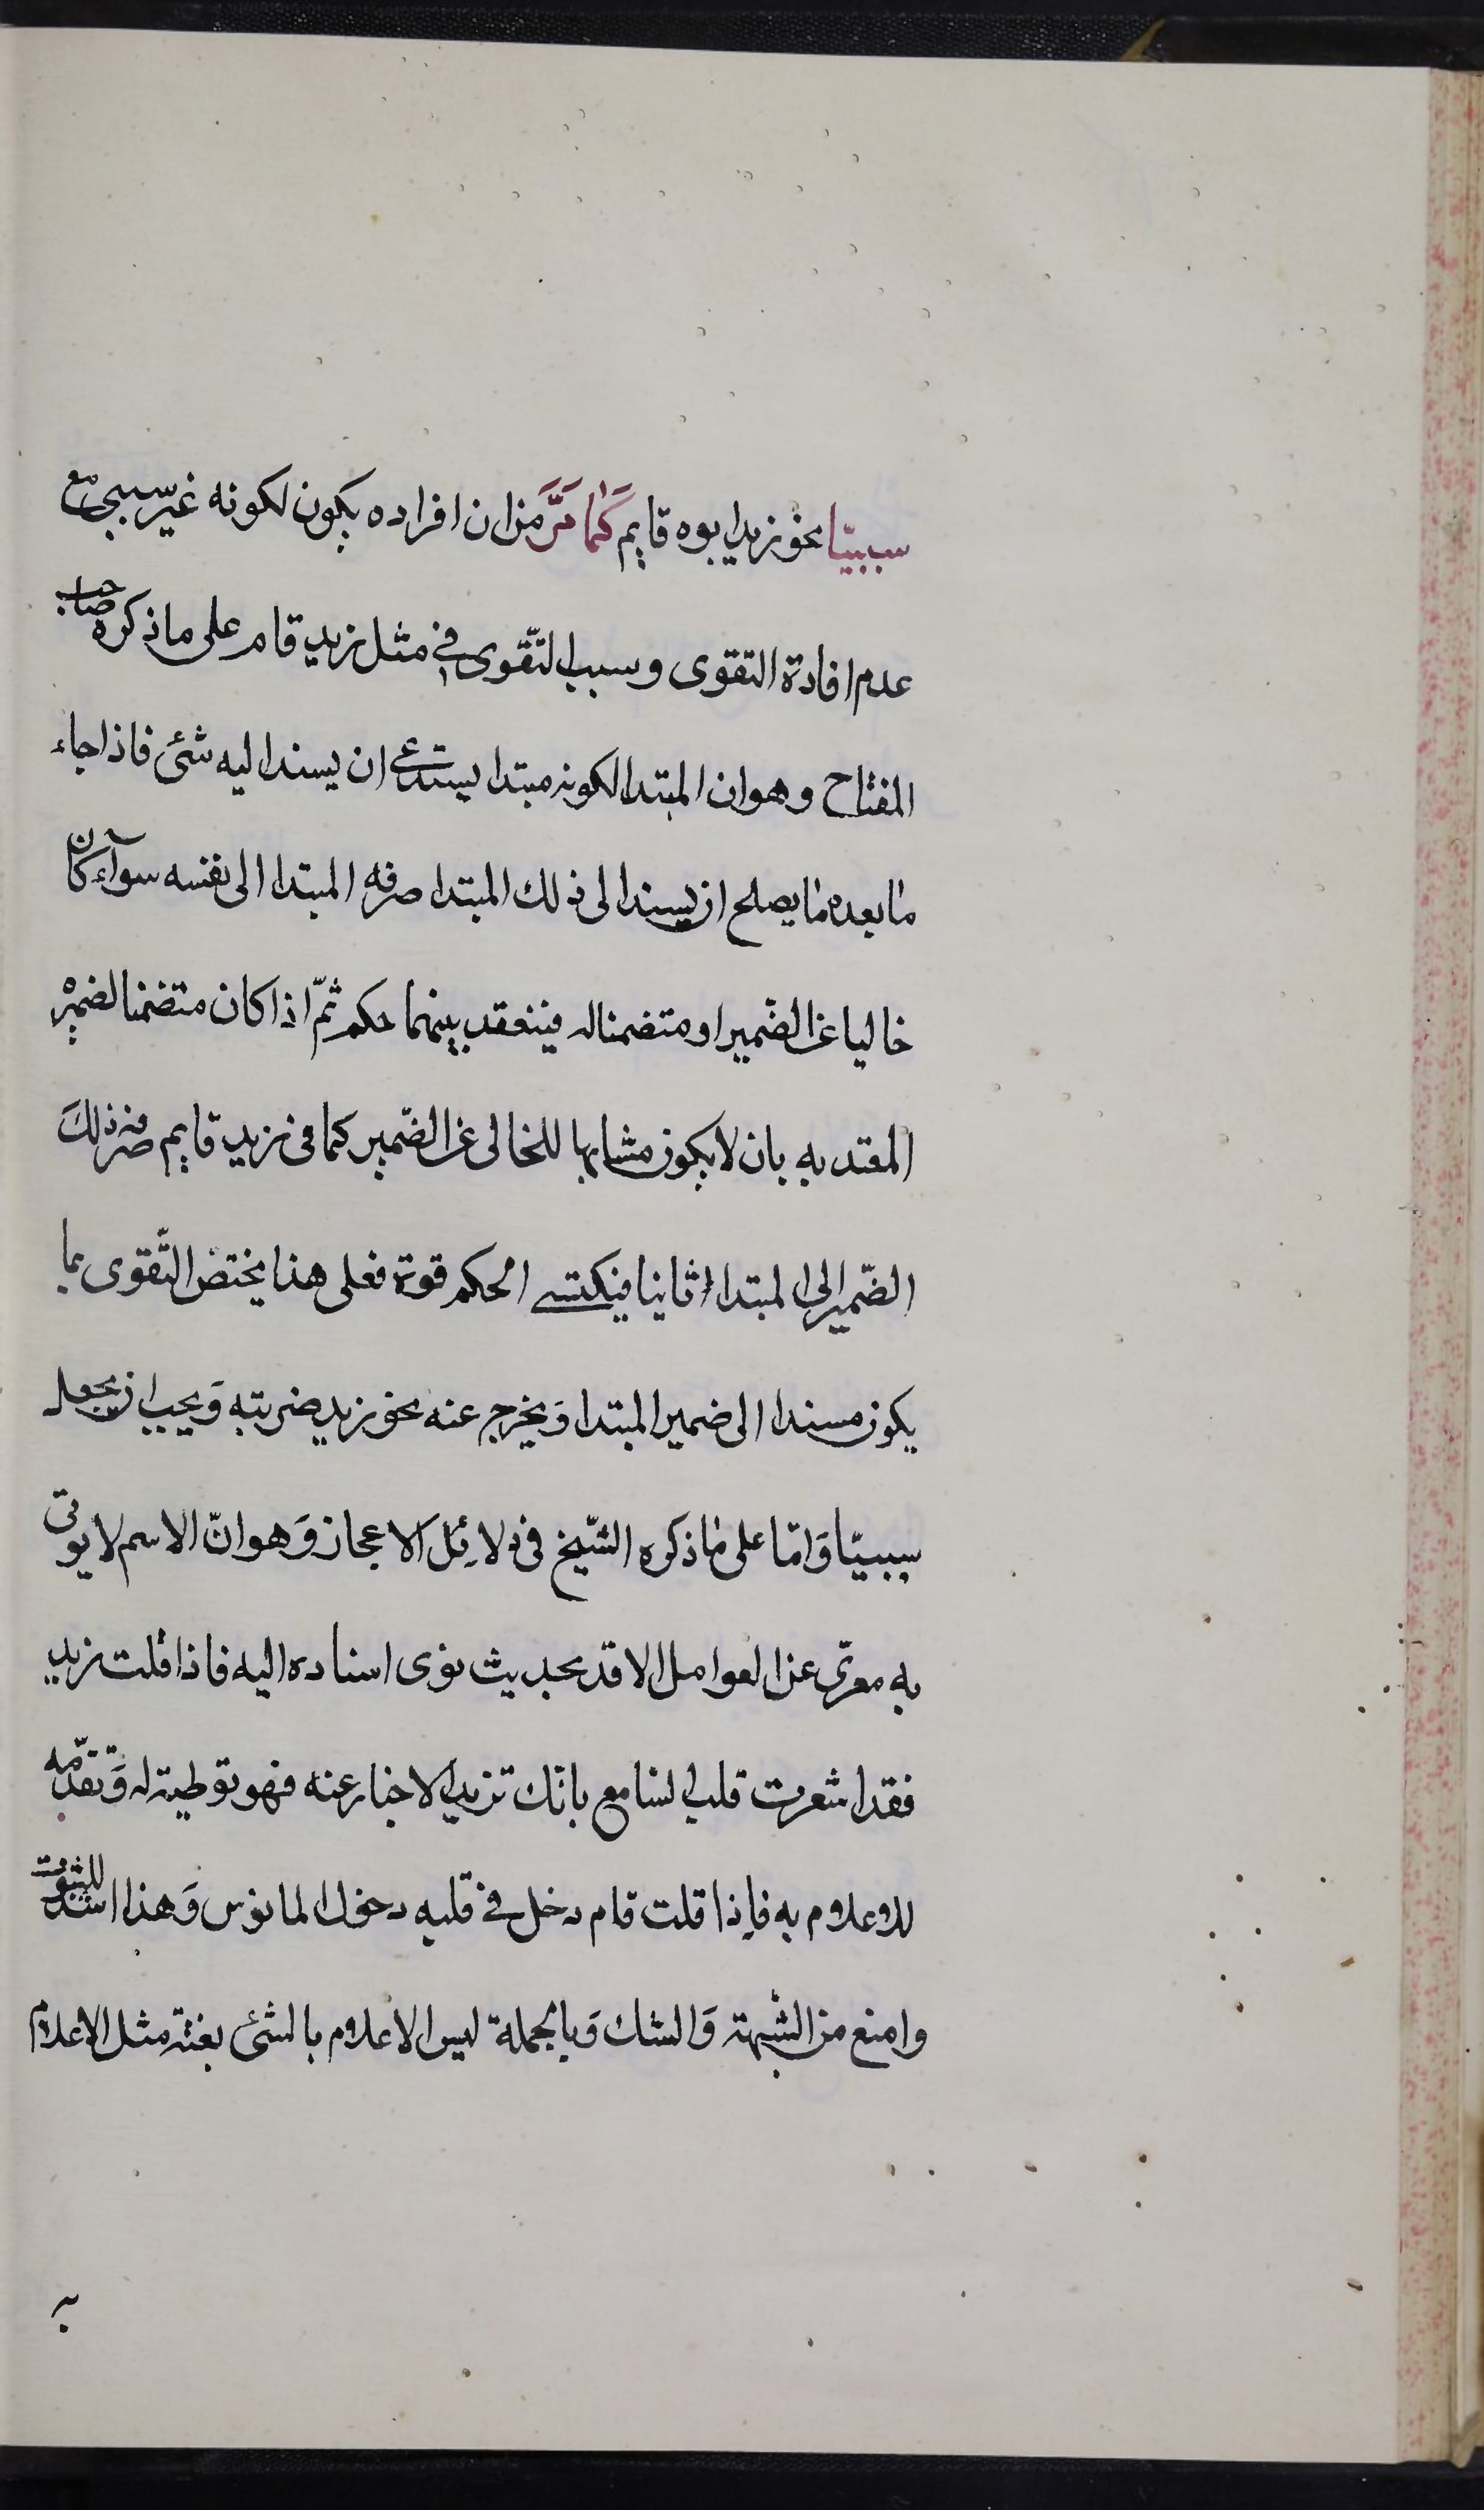 سببيّا نحو زيد ابوه قايم كَما مَرَّ من ان افراده يكون لكونه غير سببى مع
عدم افادة التقوى وسبب التّقوى فى مثل زيد قام على ما ذكره صاحب
المفتاح وهو ان المبتدا لكونه مبتدا يستدعى ان يسند اليه شئ فاذا جاء
ما بعده ما يصلح ان يسند الى ذلك المبتدا صرفه المبتدا الى نفسه سوآء كان
خاليا عن الضّمير او متضمنا له فينعقد بينهما حكم ثمّ اذا كان متضمنا لضميره
المقتد به بان لا يكون مشابها للخالى عن الضّمير كما فى زيد قايم صرفه ذلكَ
الضّمير الى المبتدا ثانيا فيكتسى الحكم قوة فعلى هذا يختص التّقوى بما
يكون مسندا الى ضمير المبتدا وَيخرج عنه نحو زيد ضربته وَيجب ان يجعل
سببيّا وَامّا على ما ذكره الشّيخ فى دلائل الاعجاز وَهو انّ الاسم لا يوتى
به معرّى عن العوامل الا قد بحديث نوى اسناده اليه فاذا قلت زيد
فقد اشعرت قلب السامع بانّك تريد الاخبار عنه فهو توطية له وَتقدّمه
للاعلام به فاِذا قلت قام دخل فى قلبه دخول المانوس وَهذا اشدّ للثبوت
وامنع من الشّبهة وَالشك وَبالجملة ليس الاعلام بالشئ بغتة مثل الاعلام
به